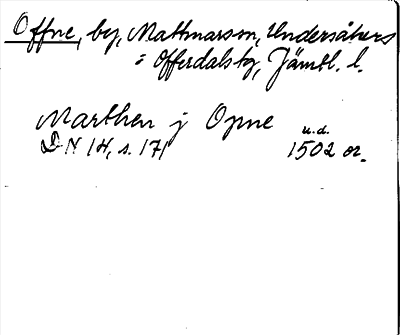 Offne, by, Mattmars sn, Undersåkers
o Offerdals tg, Jämtl. l.
Marthen j Opne u.d.
DN 14, s. 171 1502 or.